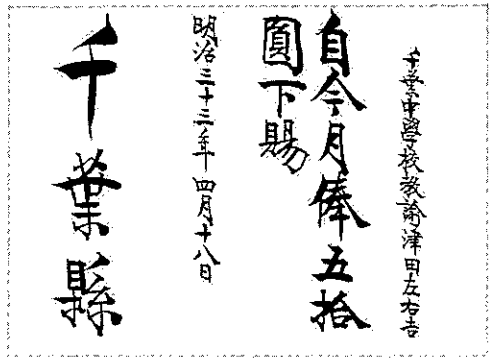 千葉中學校教諭津田左右吉
自今月俸五拾
圓下賜
明治三十三年四月十八日
千葉縣